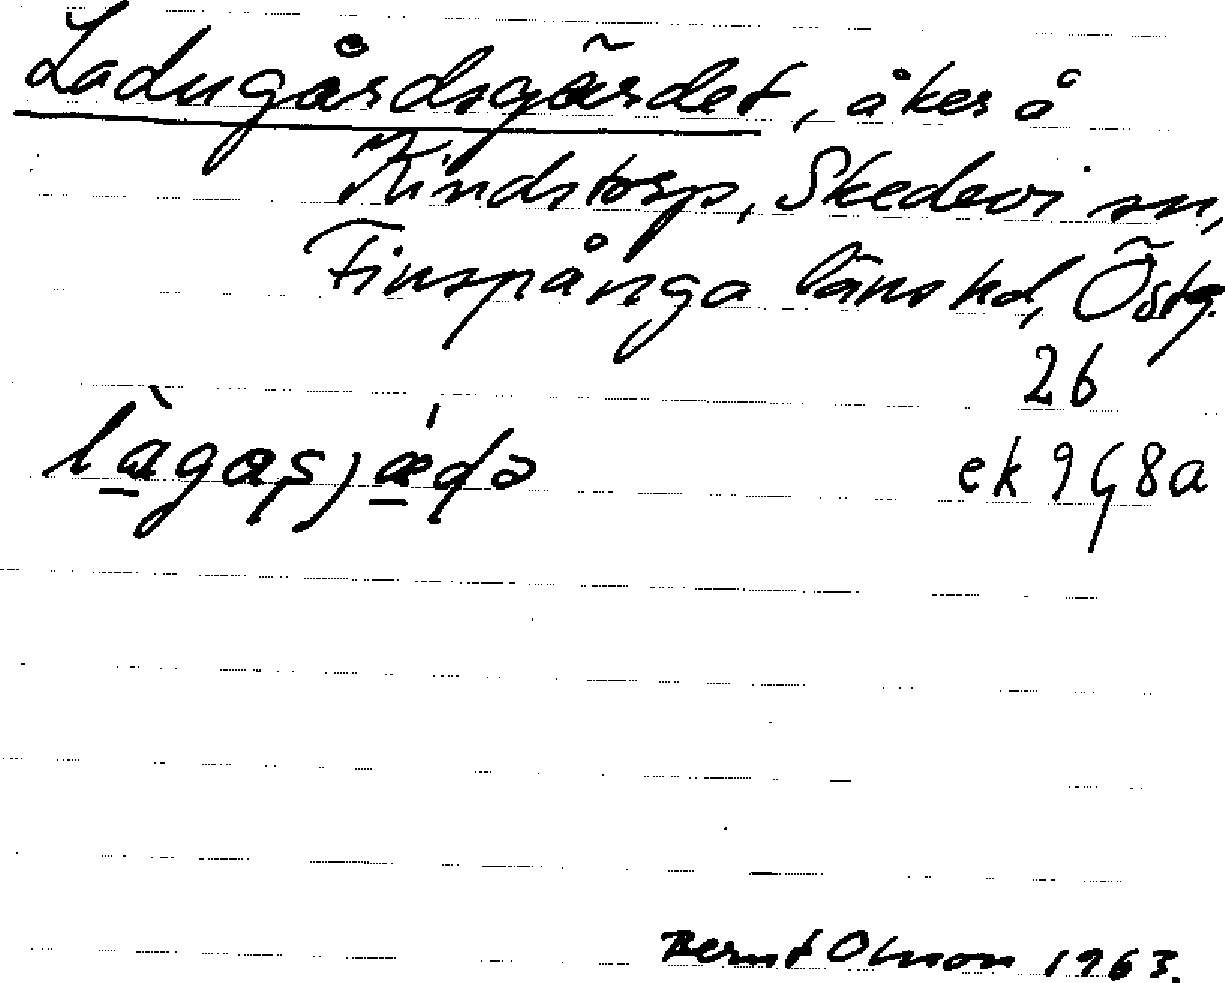 Ladugårdsgärdet, åker å
Kindstorp, Skedevi sn,
Finspånga länshd, Östg.
26
ek 9G8a
Bernt Olsson 1963.